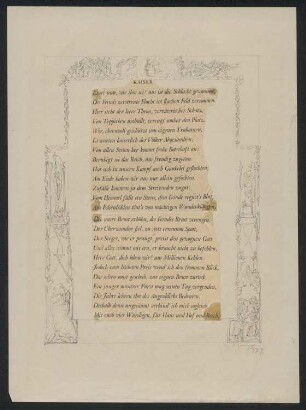 KAISER.
Es sei nun, wie ihm sei! uns ist die Schlacht gewonnen,
Des Feinds zerstreute Flucht im flachen Feld zerronnen.
Hier steht der leere Thron, verräterischer Schatz,
Von Teppichen umhüllt, verengt umher den Platz.
Wir, ehrenvoll geschützt von eigenen Trabanten,
Erwarten kaiserlich der Völker Abgesandten;
Von allen Seiten her kommt frohe Botschaft an:
Beruhigt sei das Reich, uns freudig zugetan.
Hat sich in unsern Kampf auch Gaukelei geflochten,
Am Ende haben wir uns nur allein gefochten.
Zufälle kommen ja dem Streitenden zugut:
Vom Himmel fällt ein Stein, dem Feinde regnet's Blut,
Aus Felsenhöhlen tönt's von mächtigen Wunderklängen,
Die unsre Brust erhöhn, des Feindes Brust verengen.
Der Überwundne fiel, zu stets erneutem Spott,
Der Sieger, wie er prangt, preist den gewognen Gott.
Und alles stimmt mit ein, er braucht nicht zu befehlen,
Herr Gott, dich loben wir! aus Millionen Kehlen.
Jedoch zum höchsten Preis wend' ich den frommen Blick,
Das selten sonst geschah, zur eignen Brust zurück.
Ein junger muntrer Fürst mag seinen Tag vergeuden,
Die Jahre lehren ihn des Augenblicks Bedeuten.
Deshalb denn ungesäumt verbind' ich mich sogleich
Mit euch vier Würdigen, für Haus und Hof und Reich.